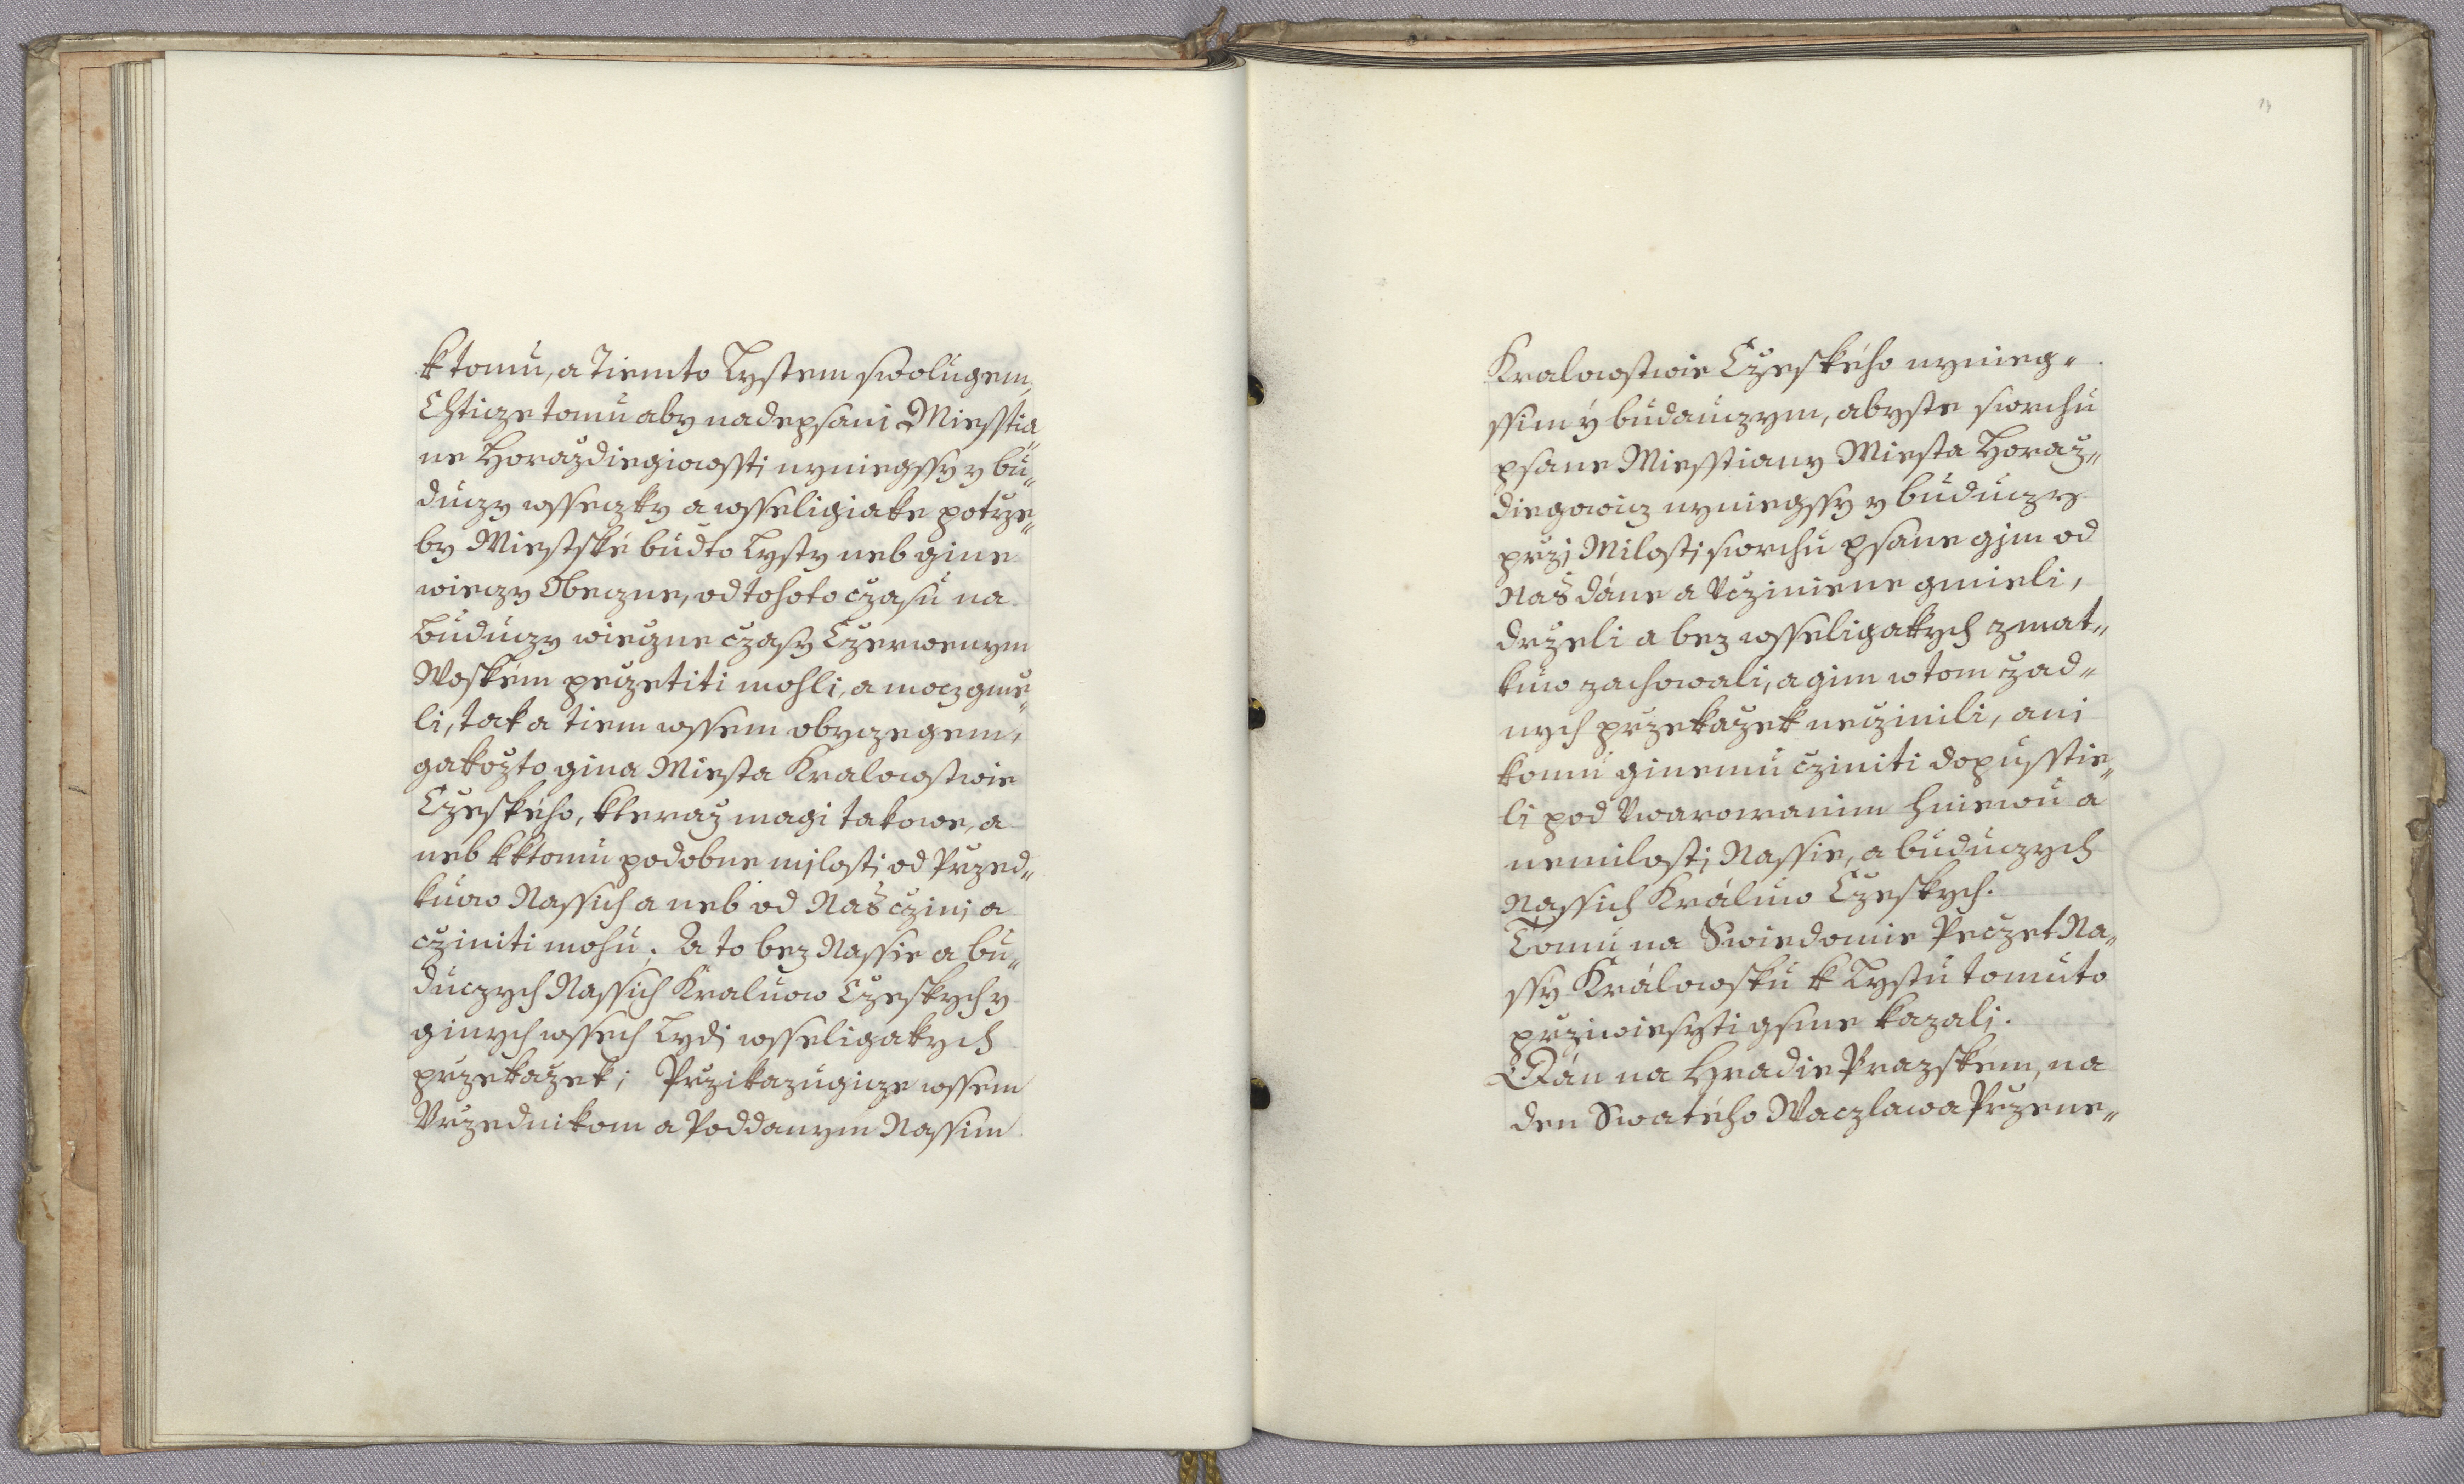 k tomu, a Tiemto Lystem swolugem,
Chticze tomu aby nadepsani Miesstia„
ne Horazdiegiowssti nyniegssy y bu„
duczy wsseczky a wsseligiake potrze„
by Miestské budto Lysty neb gine
wieczy Obeczne, od tohoto czasu na
buduczy wieczne czasy Czerwenym
Woském peczetiti mohli, a mocz gmie„
li, tak a tiem wssem obyczegem,
gakozto gina Miesta Kralowstwie
Czeského, kteraz magi takowe, a
neb k ktomu podobne milosti od Przed„
kuow Nassich a neb od Nas czini a
cziniti mohu; A to bez Nassie a bu„
duczych Nassich Kraluow Czeskych y
ginych wssech Lydi wsseligakych
przekazek; Przikazugicze wssem
Vrzednikom a Poddanym Nassim
14
Kralowstwie Czeského nynieg„
ssim ÿ budauczym, abyste swrchu
psane Miesstiany Miesta Horaz„
diegowicz nyniegssy y buduczy
przi Milosti swrchu psane gim od
Nas dáne a Vcziniene gmieli,
drzeli a bez wsseligakych zmat„
kuw zachowali, a gim w tom zad„
nych przekazek neczinili, ani
komu ginemu cziniti dopusstie„
li pod Vwarowanim hniewu a
nemilosti Nassie, a buduczych
Nassich Králuw Czeskych.
Tomu na Swiedomie Peczet Na„
ssy Králowsku k Lystu tomuto
przywiesyti gsme kazali.
Dán na Hradie Prazskem, na
den Swatého Waczlawa Przene„